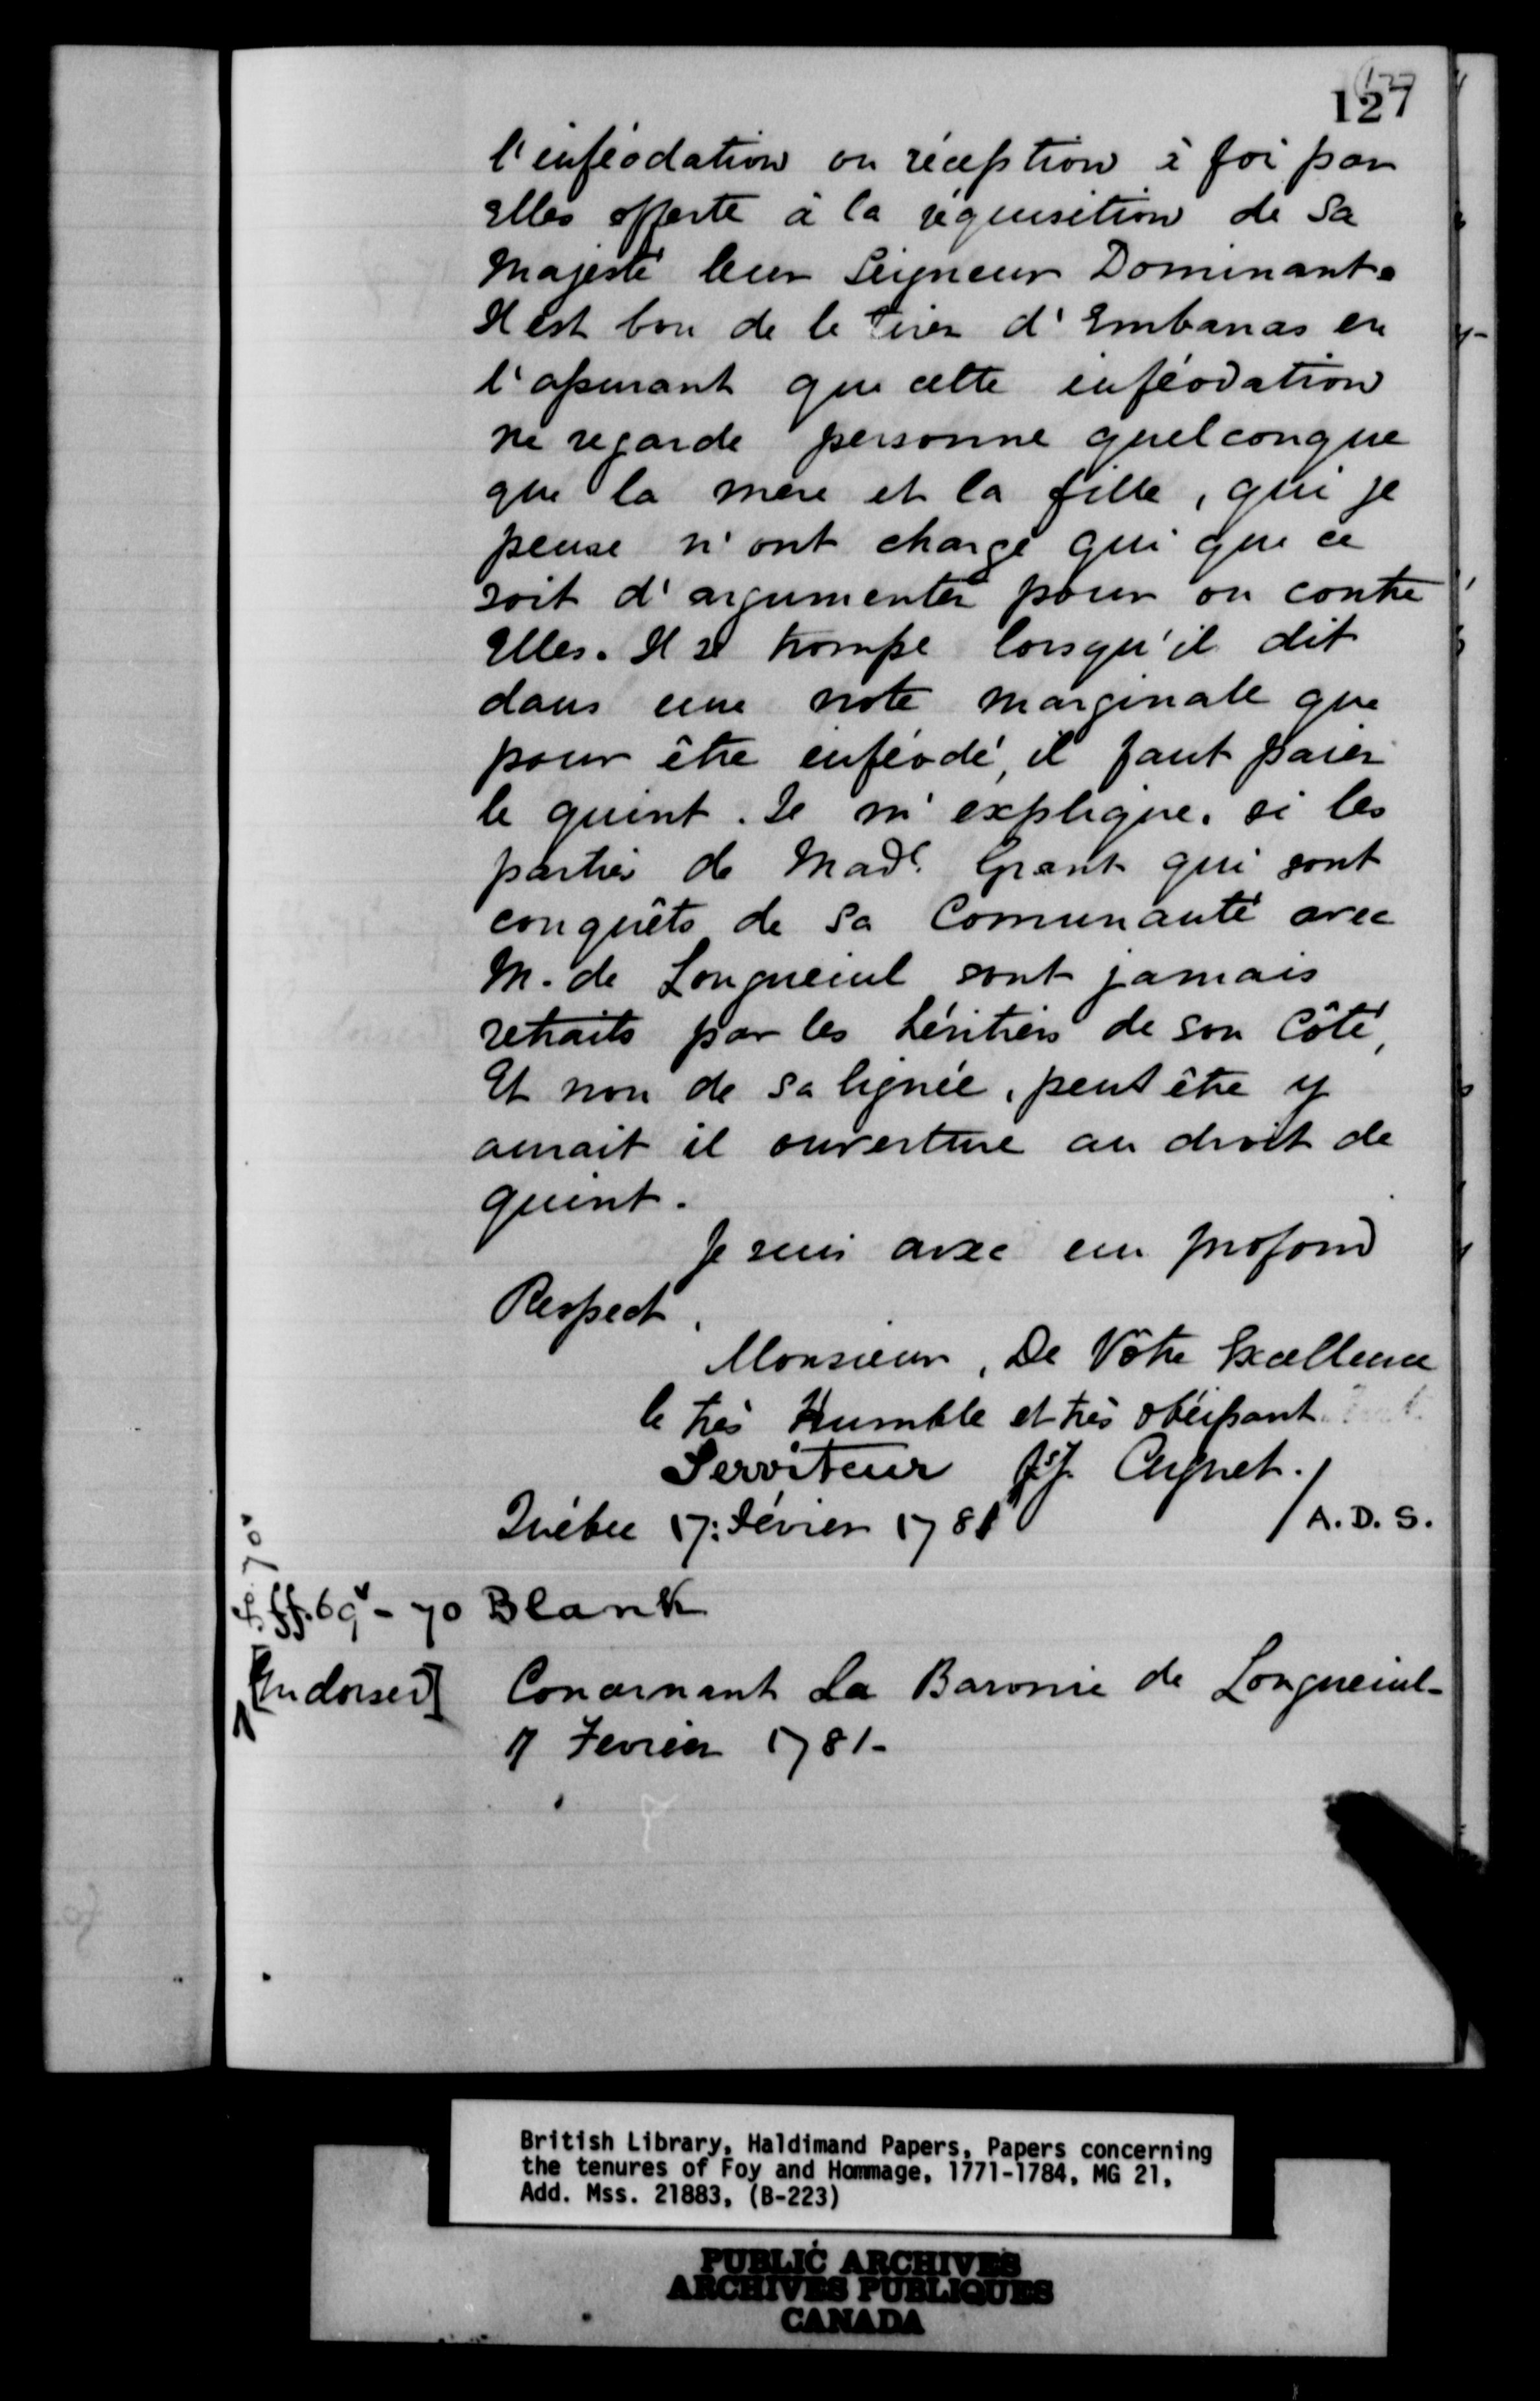 127
l'inféodation ou réception à foi par
Elles offerte à la réquisition de Sa
Majesté leur Seigneur Dominant.
Il est bon de le tirer d'Embaras en
l'assurant que cette inféodation
ne regarde personne quelconque
que la mere et la fille, qui je
pense n'ont chargé qui que ce
soit d'argumenter pour ou contre
Elles. Il se trompe lorsqu'il dit
dans une note marginale que
pour être inféodé, il faut paier
le quint. Je m'explique. si les
parties de Made. Grant qui sont
conquêts de Sa Communauté avec
M. de Longueuil sont jamais
retraits par les héritiers de son Côté,
Et non de Sa lignée, peut être y
aurait il ouverture au droit de
quint.
Je suis avec un profond
Respect,
Monsieur, De Vôtre Excellence
le très Humble et très obéissant
Serviteur fs. J. Cugnet.
Québec 17: février 1781 / A. D. S.
f. 70v
ff. 69v - 70 Blank
[Endorsed] Concernant La Baronie de Longueuil-
17 Fevrier 1781-
British Library, Haldimand Papers, Papers concerning
the tenures of Foy and Hommage, 1771-1784, MG 21,
Add. Mss. 21883, (B-223)
PUBLIC ARCHIVES
ARCHIVES PUBLIQUES
CANADA